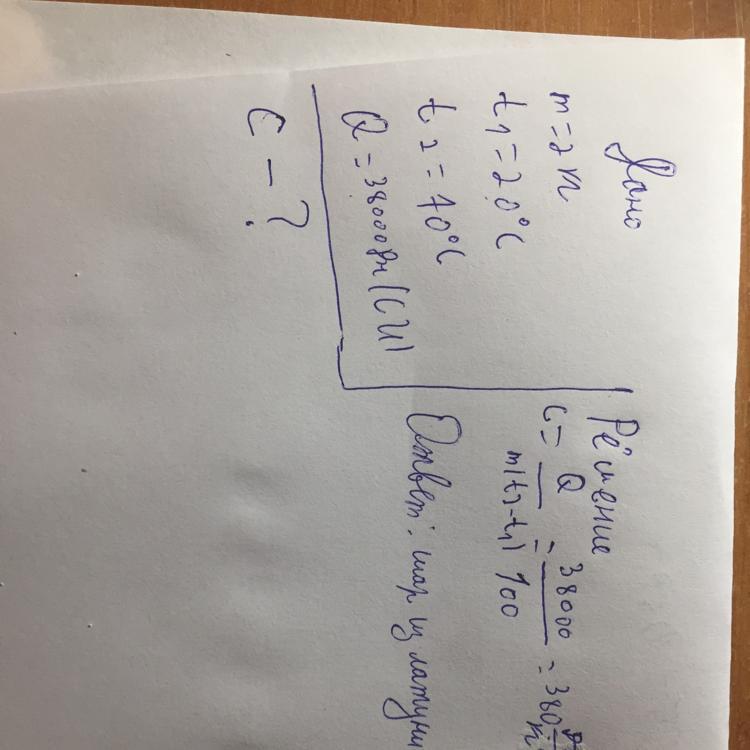 Дано
m=2кг
t1=20°C
t2=70°C
Q=38000Дж(СИ)
C-?
Решение
c=Q/m(t2-t1)=38000/100=380
Ответ: шар из латуни